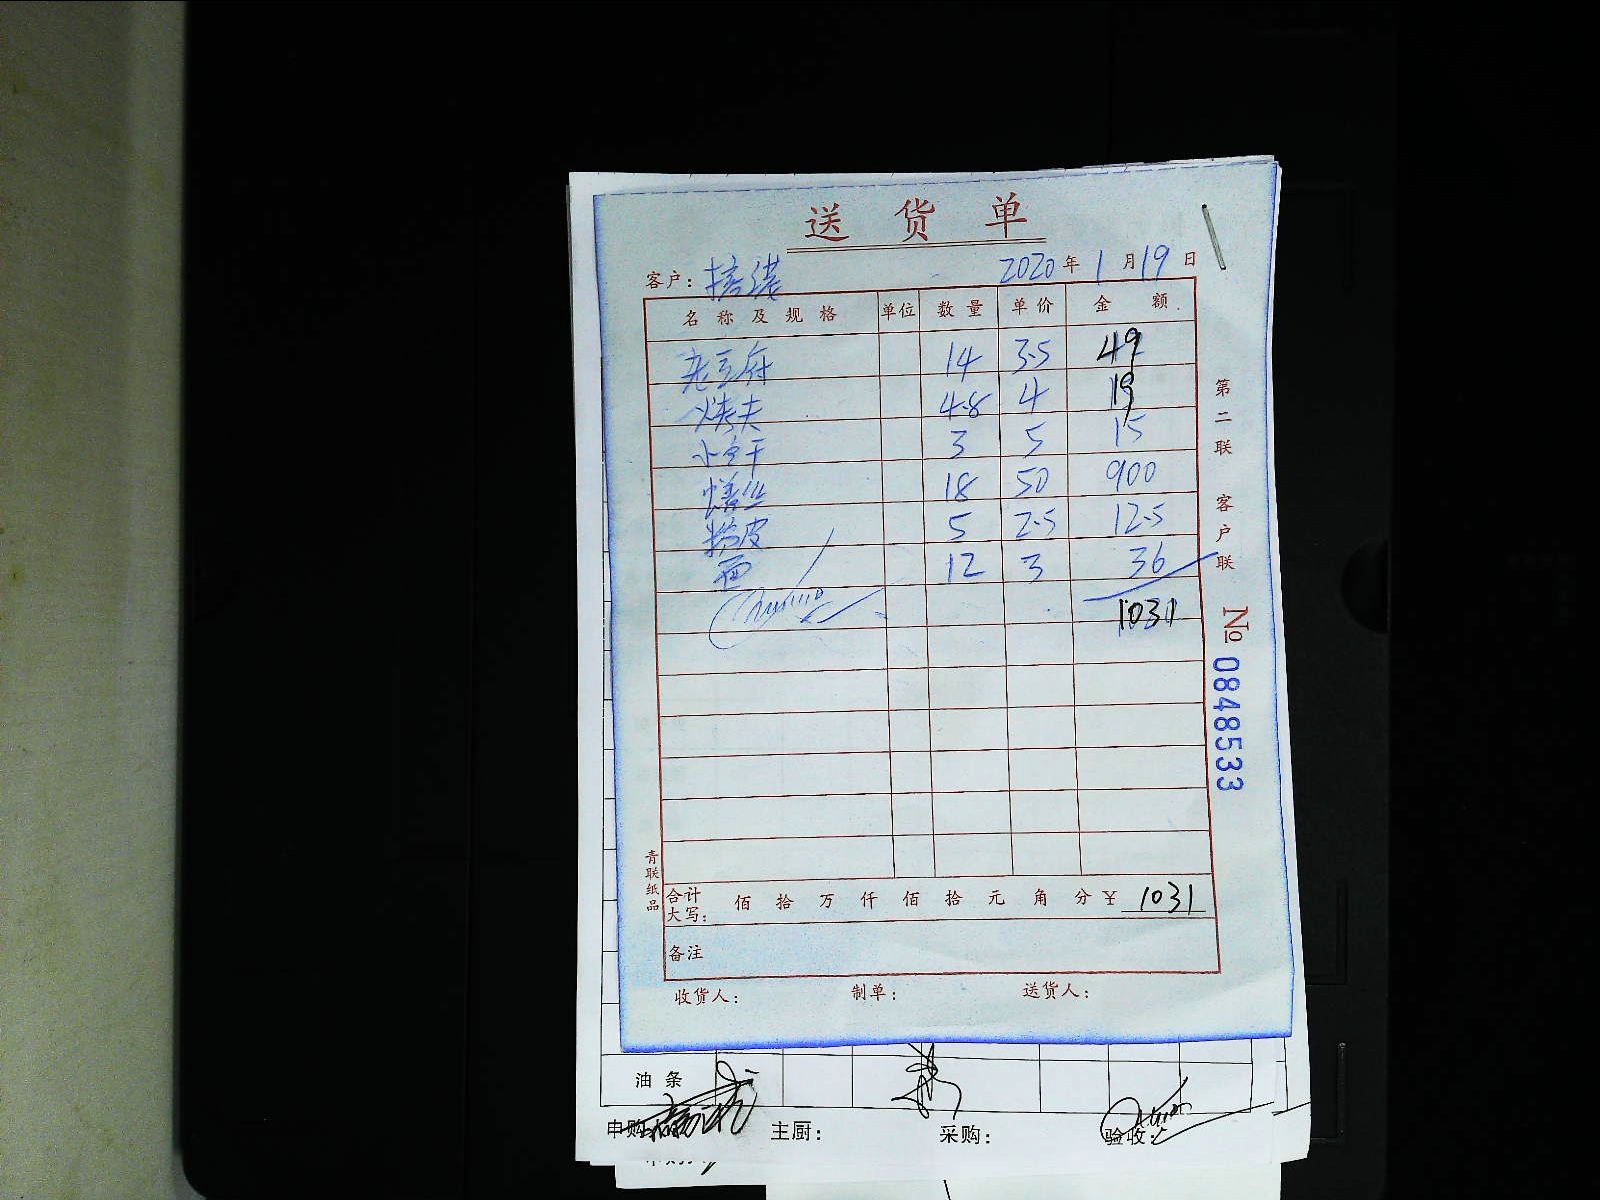 送货单
客户： 2020年1月19日
名称及规格 单位 数量 单价 金额
老豆腐 14 3.5 49
烤夫 4.8 4 19
小白干 3 5 15
18 50 900
粉皮 5 2.5 12.5
面 12 3 36
1031
第二联 客户联
№ 0848533
青联纸品
合计大写： 佰拾万仟佰拾元角分¥ 1031
备注
收货人： 制单： 送货人：
油条
申购 主厨： 采购： 验收：